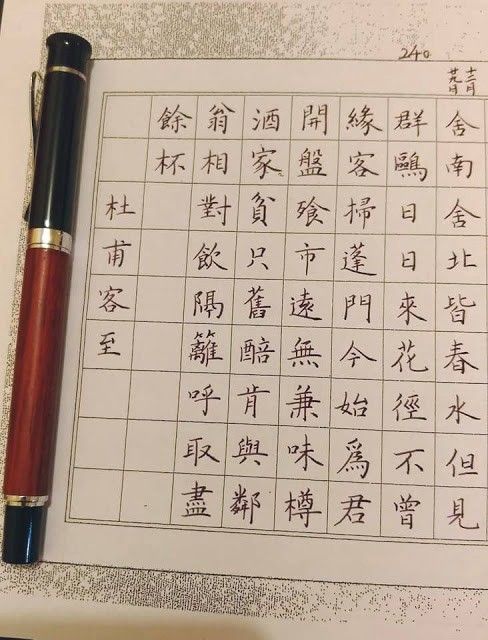 240
十二月
廿九日
舍南舍北皆春水但見
群鷗日日來花徑不曾
緣客掃蓬門今始爲君
開盤飱市遠無兼味樽
酒家貧只舊醅肯與鄰
翁相對飲隔籬呼取盡
餘杯
杜甫客至